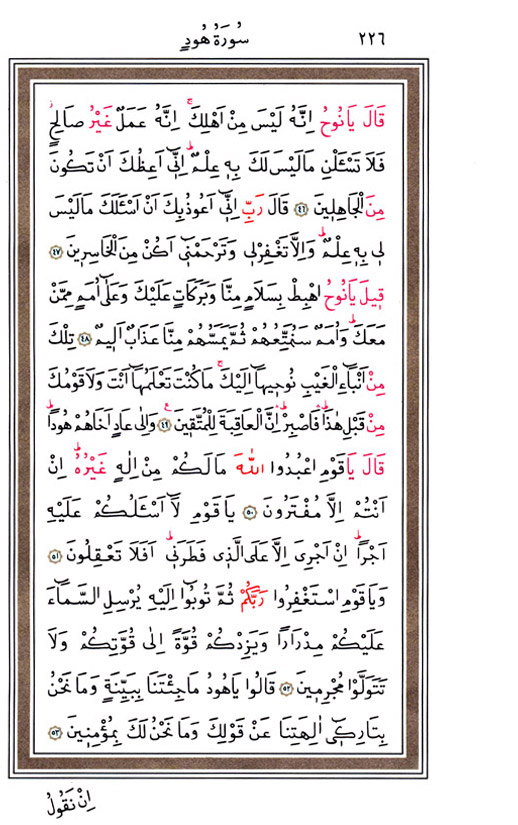 ٢٢٦ سُورَةُ هُودٍ
قَالَ يَانُوحُ اِنَّهُ لَيْسَ مِنْ اَهْلِكَۚ اِنَّهُ عَمَلٌ غَيْرُ صَالِحٍۘ
فَلَا تَسْـَٔلْنِ مَالَيْسَ لَكَ بِهٖ عِلْمٌۜ اِنّٖٓى اَعِظُكَ اَنْ تَكُونَ
مِنَ الْجَاهِلٖينَ ﴿٤٦﴾ قَالَ رَبِّ اِنّٖٓى اَعُوذُبِكَ اَنْ اَسْـَٔلَكَ مَالَيْسَ
لٖى بِهٖ عِلْمٌۜ وَاِلَّا تَغْفِرْلٖى وَتَرْحَمْنٖٓى اَكُنْ مِنَ الْخَاسِرٖينَ ﴿٤٧﴾
قٖيلَ يَانُوحُ اهْبِطْ بِسَلَامٍ مِنَّا وَبَرَكَاتٍ عَلَيْكَ وَعَلٰٓى اُمَمٍ مِمَّنْ
مَعَكَۜ وَاُمَمٌ سَنُمَتِّعُهُمْ ثُمَّ يَمَسُّهُمْ مِنَّا عَذَابٌ اَلٖيمٌ ﴿٤٨﴾ تِلْكَ
مِنْ اَنْبَٓاءِ الْغَيْبِ نُوحٖيهَٓا اِلَيْكَۚ مَا كُنْتَ تَعْلَمُهَٓا اَنْتَ وَلَا قَوْمُكَ
مِنْ قَبْلِ هٰذَاۜۛ فَاصْبِرْۜۛ اِنَّ الْعَاقِبَةَ لِلْمُتَّقٖينَ ﴿٤٩﴾ وَاِلٰى عَادٍ اَخَاهُمْ هُودًاۜ
قَالَ يَاقَوْمِ اعْبُدُوا اللّٰهَ مَا لَكُمْ مِنْ اِلٰهٍ غَيْرُهُۜ اِنْ
اَنْتُمْ اِلَّا مُفْتَرُونَ ﴿٥٠﴾ يَاقَوْمِ لَٓا اَسْـَٔلُكُمْ عَلَيْهِ
اَجْرًاۜ اِنْ اَجْرِىَ اِلَّا عَلَى الَّذٖى فَطَرَنٖىۜ اَفَلَا تَعْقِلُونَ ﴿٥١﴾
وَيَاقَوْمِ اسْتَغْفِرُوا رَبَّكُمْ ثُمَّ تُوبُٓوا اِلَيْهِ يُرْسِلِ السَّمَٓاءَ
عَلَيْكُمْ مِدْرَارًا وَيَزِدْكُمْ قُوَّةً اِلٰى قُوَّتِكُمْ وَلَا
تَتَوَلَّوْا مُجْرِمٖينَ ﴿٥٢﴾ قَالُوا يَاهُودُ مَاجِئْتَنَا بِبَيِّنَةٍ وَمَا نَحْنُ
بِتَارِكٖٓى اٰلِهَتِنَا عَنْ قَوْلِكَ وَمَا نَحْنُ لَكَ بِمُؤْمِنٖينَ ﴿٥٣﴾
اِنْ نَقُولُ